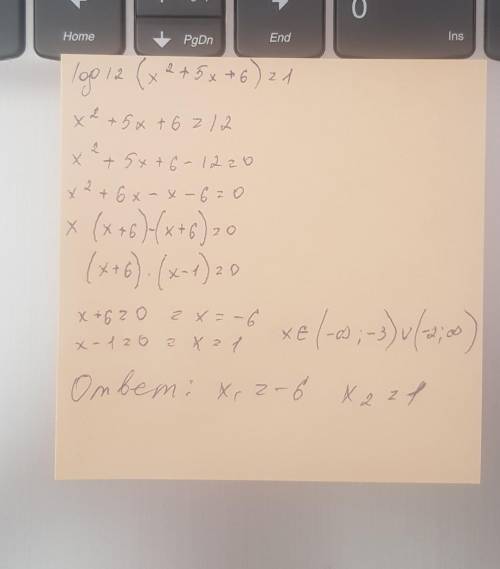 Home
PgDn
End
0
Ins
log 12 (x² + 5x + 6) = 1
x² + 5x + 6 = 12
x² + 5x + 6 - 12 = 0
x² + 6x - x - 6 = 0
x (x+6)-(x+6) = 0
(x+6) · (x-1) = 0
x+6=0 = x = -6
x-1=0 = x = 1 x ∈ (-∞; -3) ∪ (-2; ∞)
Ответ: x₁ = -6 x₂ = 1